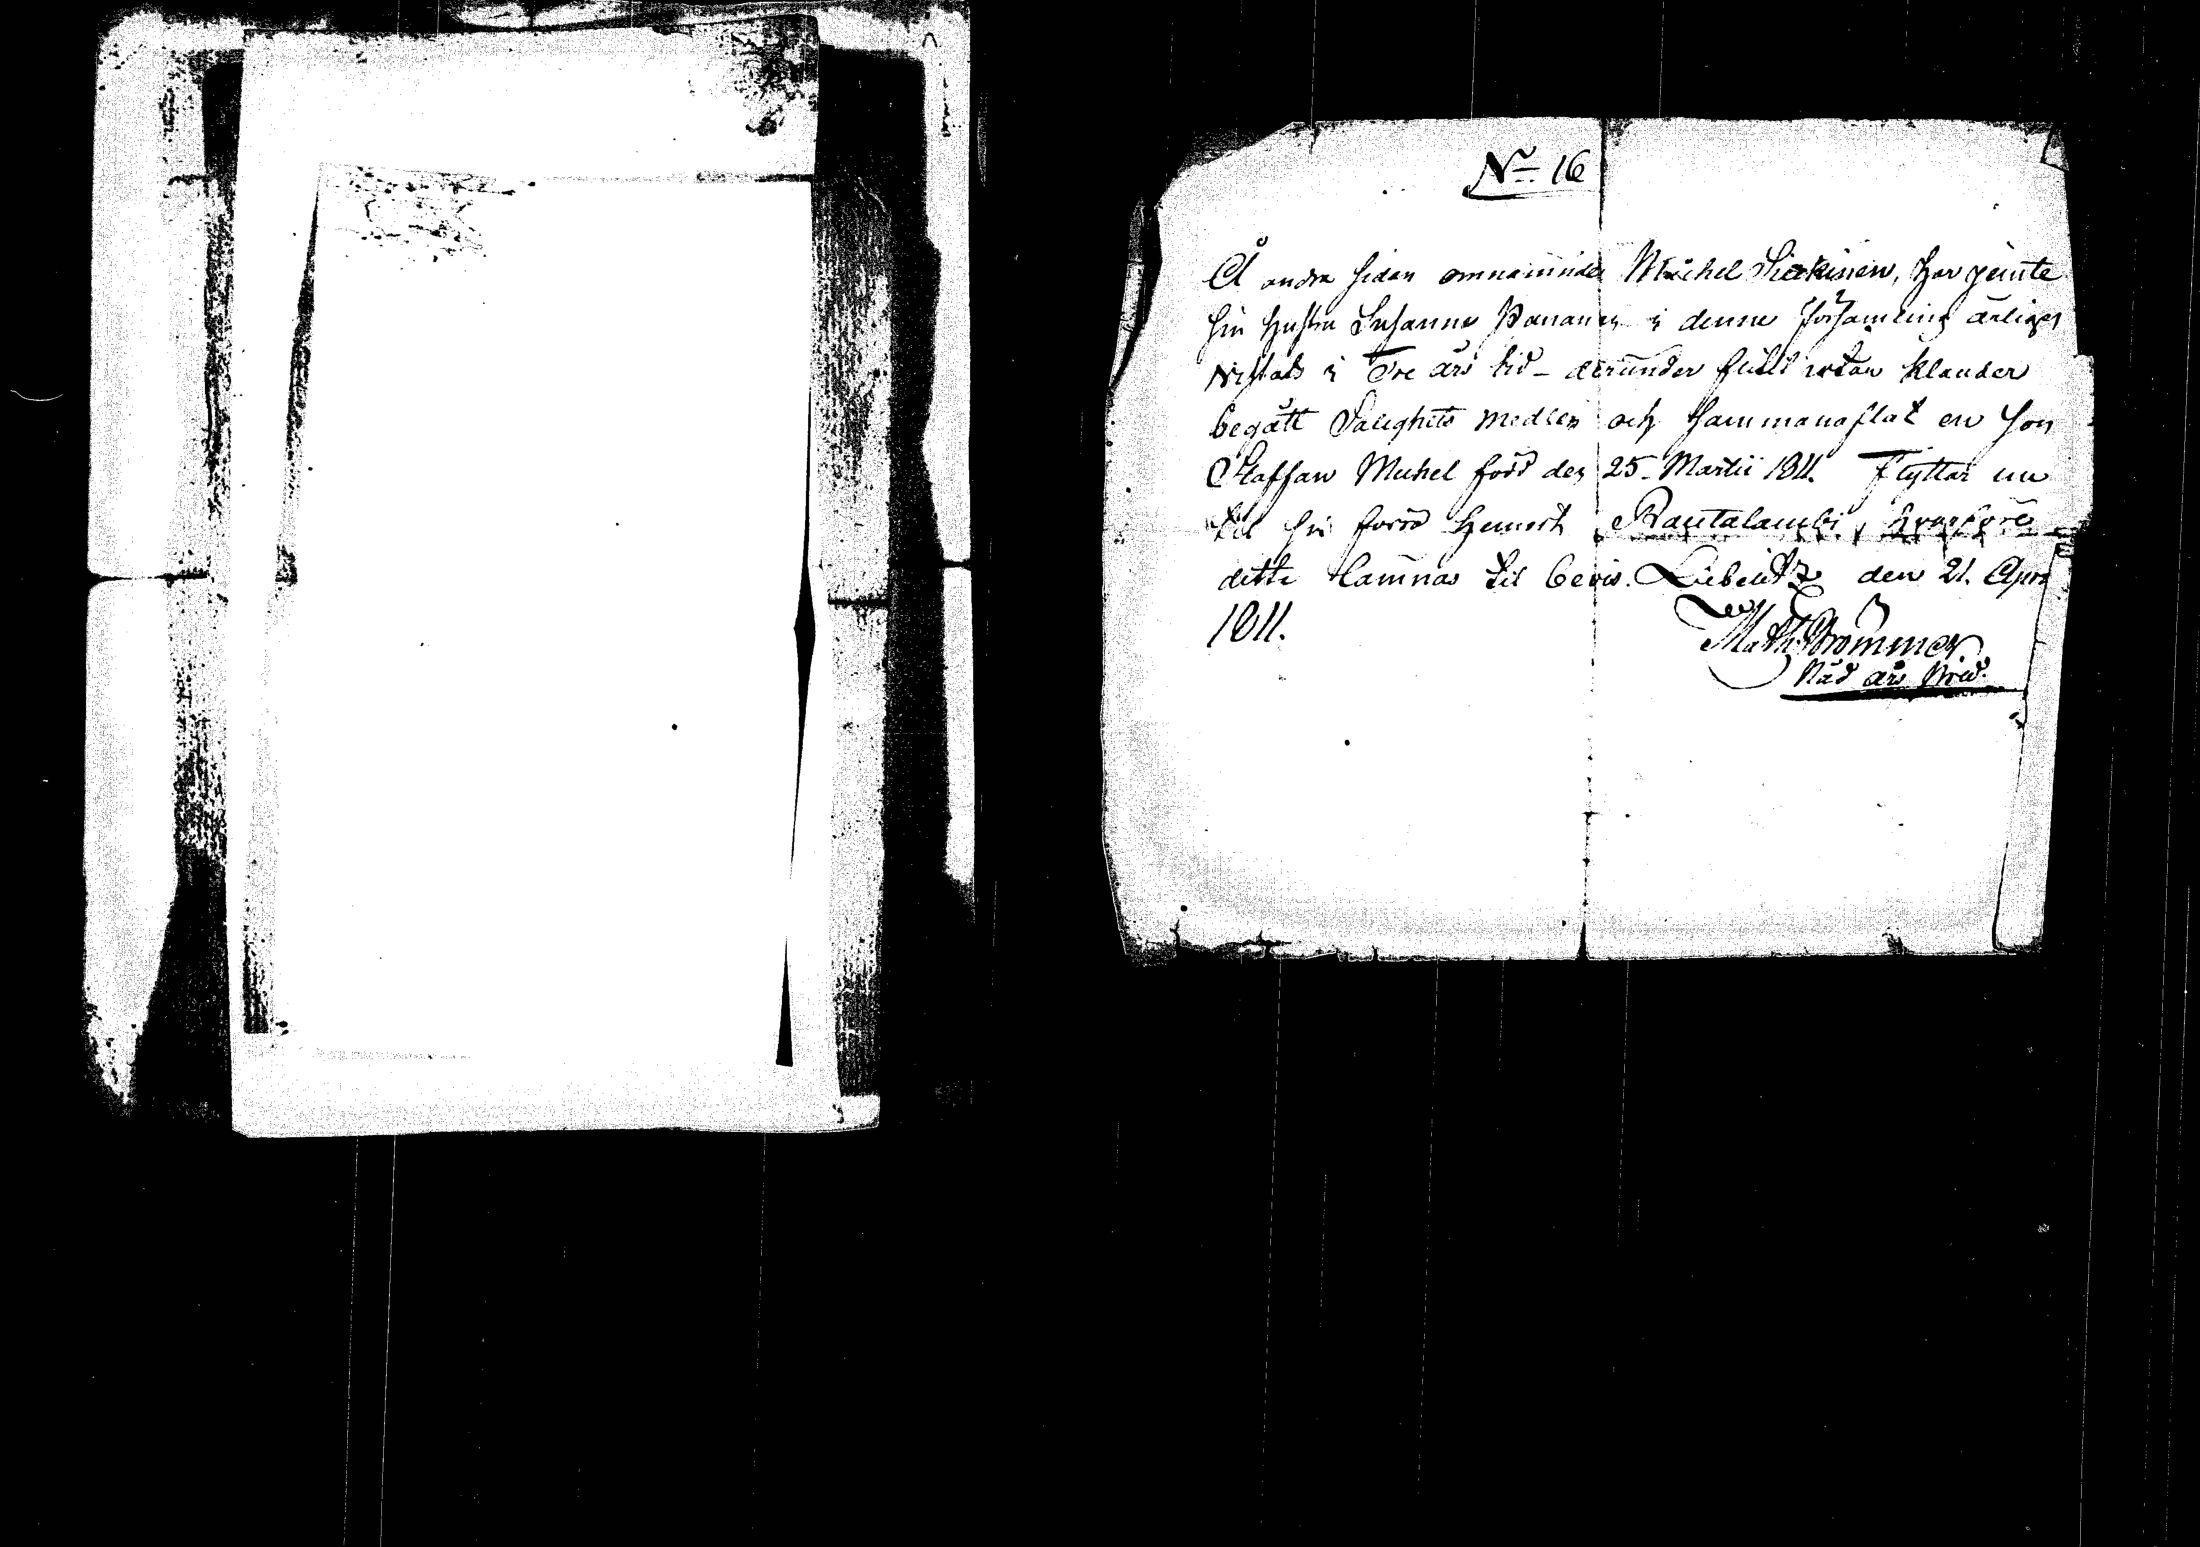 No 16
Å andra sidan omnämnde Michel Siekinen, har jemte
sin hustru Susanna Pananen i denna Församling ärligen
vistats i Tre års tid – derunder flitit utan klander
begått Salighets medlen och sammanaflat en son
Staffan Michel född den 25. Martii 1811. Flyttar nu
til sin förra hemort Rautalambi, hvarföre
detta lämnas til bevis. Libelitz den 21. Apr
1811.
Math. Brommer
Nåd års Pred.